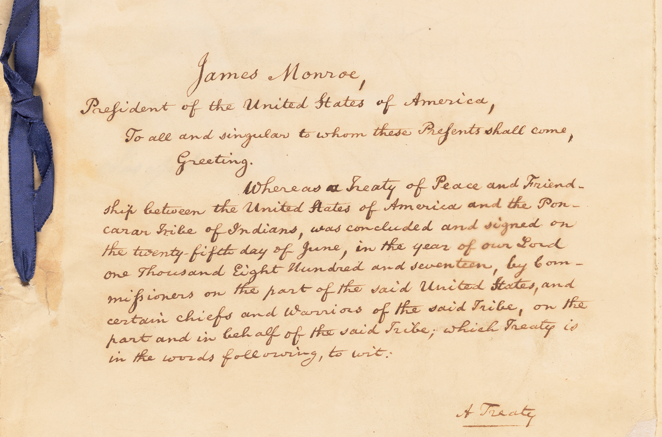 James Monroe,
President of the United States of America,
To all and singular to whom these Presents shall come,
Greeting.
Whereas a Treaty of Peace and Friend-
ship between the United States of America and the Pon-
carar Tribe of Indians, was concluded and signed on
the twenty-fifth day of June, in the year of our Lord
one Thousand Eight Hundred and seventeen, by Com-
missioners on the part of the said United States, and
certain chiefs and Warriors of the said Tribe, on the
part and in behalf of the said Tribe; which Treaty is
in the words following, to wit:
A Treaty